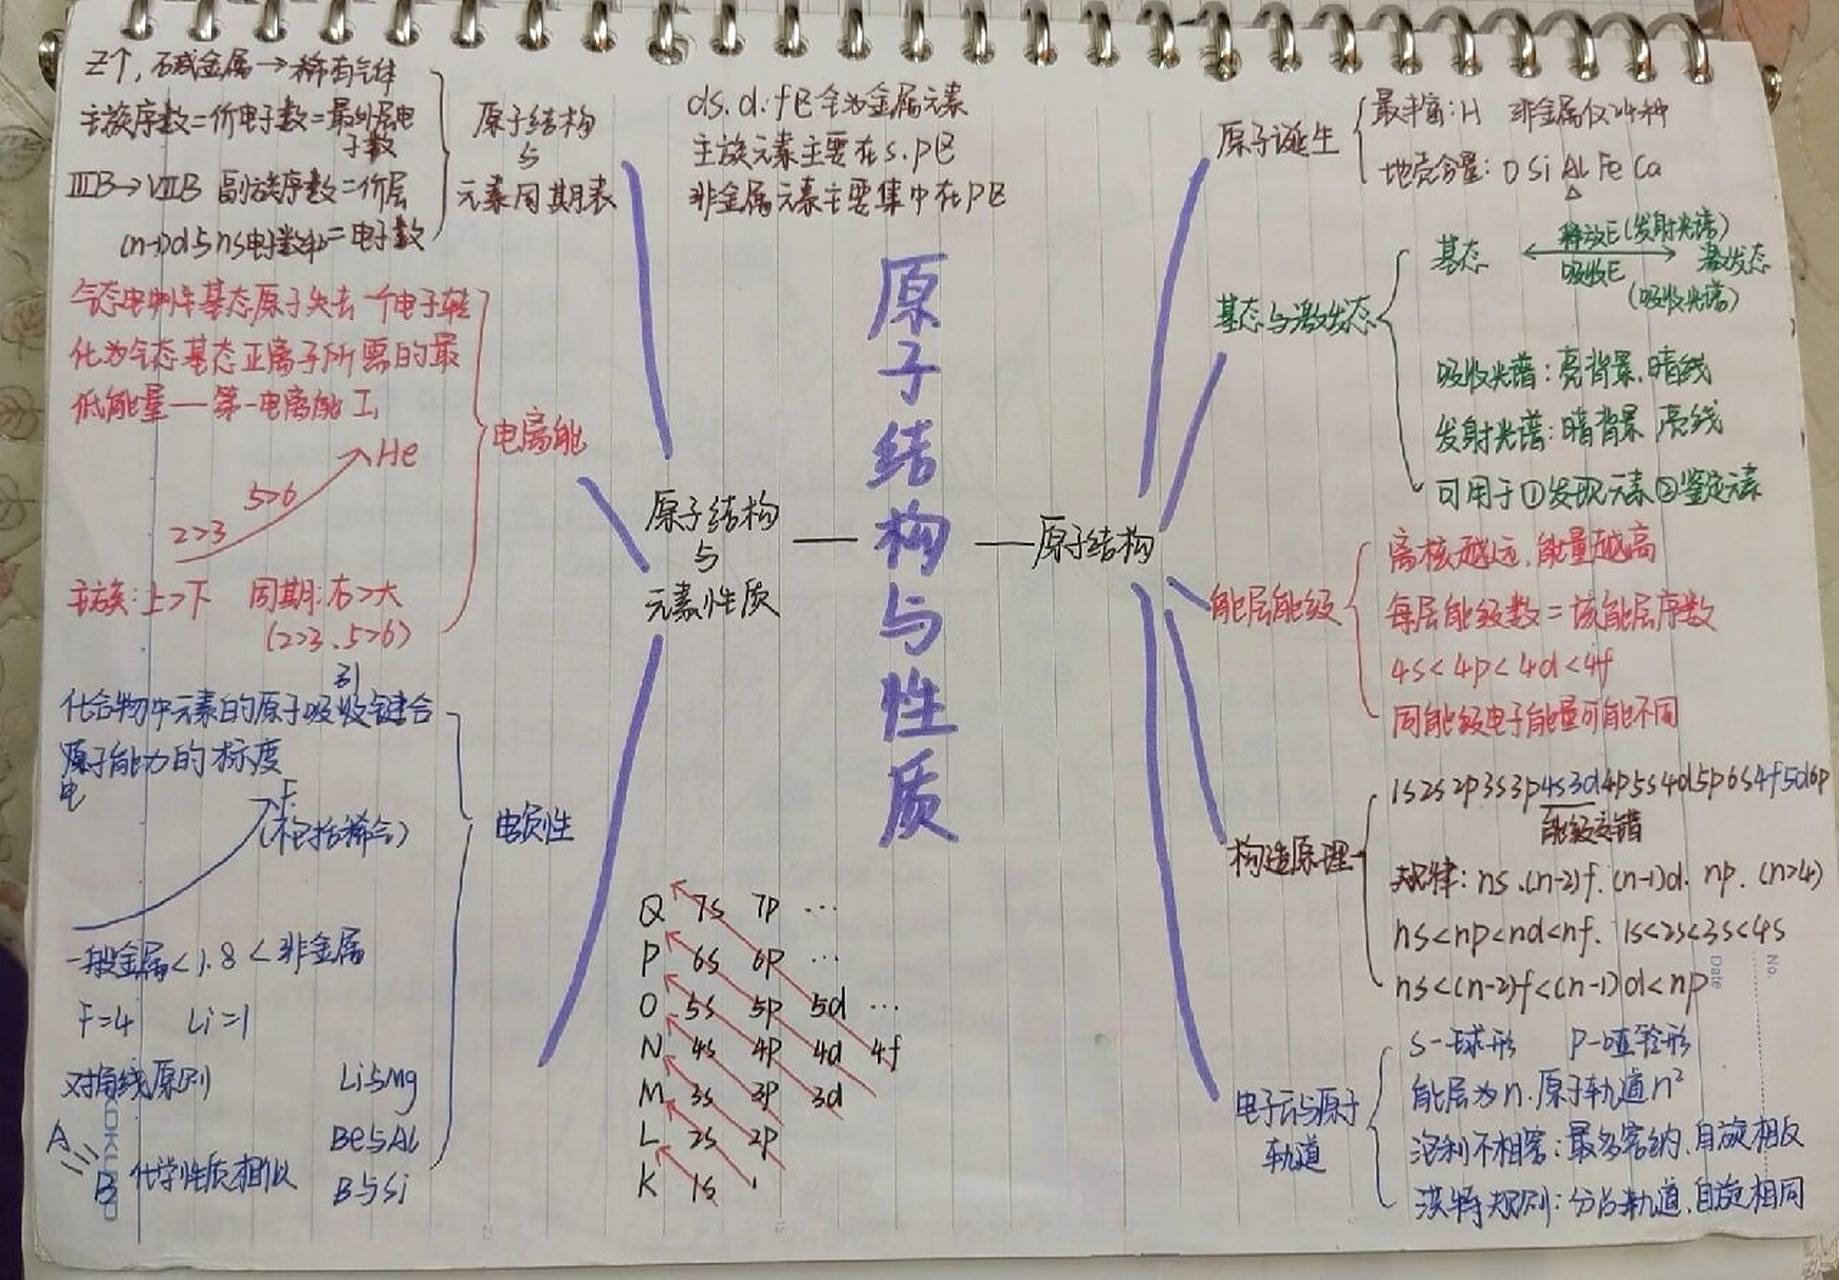 原子结构与性质
原子结构
与
元素性质
原子结构
Z个,碱金属→稀有气体
主族序数=价电子数=最外层电
子数
ⅢB→ⅦB 副族序数=价层
(n-1)d与ns电子数和=电子数
原子结构
与
元素周期表
ds.d.f区全为金属元素
主族元素主要在s.p区
非金属元素主要集中在P区
气态电中性基态原子失去一个电子转
化为气态基态正离子所需的最
低能量——第一电离能 I₁
电离能
He
5>6
2>3
主族:上>下 周期:右>大
(2>3、5>6)
引
化合物中元素的原子吸收键合
原子能力的标度
电
F
(不包括稀气)
电负性
一般金属<1.8<非金属
F=4 Li=1
对角线原则 Li与Mg
Be与Al
A
B 化学性质相似 B与Si
Q 7s 7p ...
P 6s 6p ...
O 5s 5p 5d ...
N 4s 4p 4d 4f
M 3s 3p 3d
L 2s 2p
K 1s
原子诞生
最丰富:H 非金属仅24种
地壳含量:O Si Al Fe Ca
基态与激发态
释放E(发射光谱)
基态 激发态
吸收E
(吸收光谱)
吸收光谱:亮背景.暗线
发射光谱:暗背景 亮线
可用于①发现元素②鉴定元素
能层能级
离核越远.能量越高
每层能级数=该能层序数
4s<4p<4d<4f
同能级电子能量可能不同
构造原理
1s2s2p3s3p4s3d4p5s4d5p6s4f5d6p
能级交错
规律:ns.(n-2)f.(n-1)d.np.(n>4)
ns<np<nd<nf. 1s<2s<3s<4s
ns<(n-2)f<(n-1)d<np
No.
Date
电子云与原子
轨道
S-球形 P-哑铃形
能层为n.原子轨道n²
泡利不相容:最多容纳.自旋相反
洪特规则:分占轨道.自旋相同